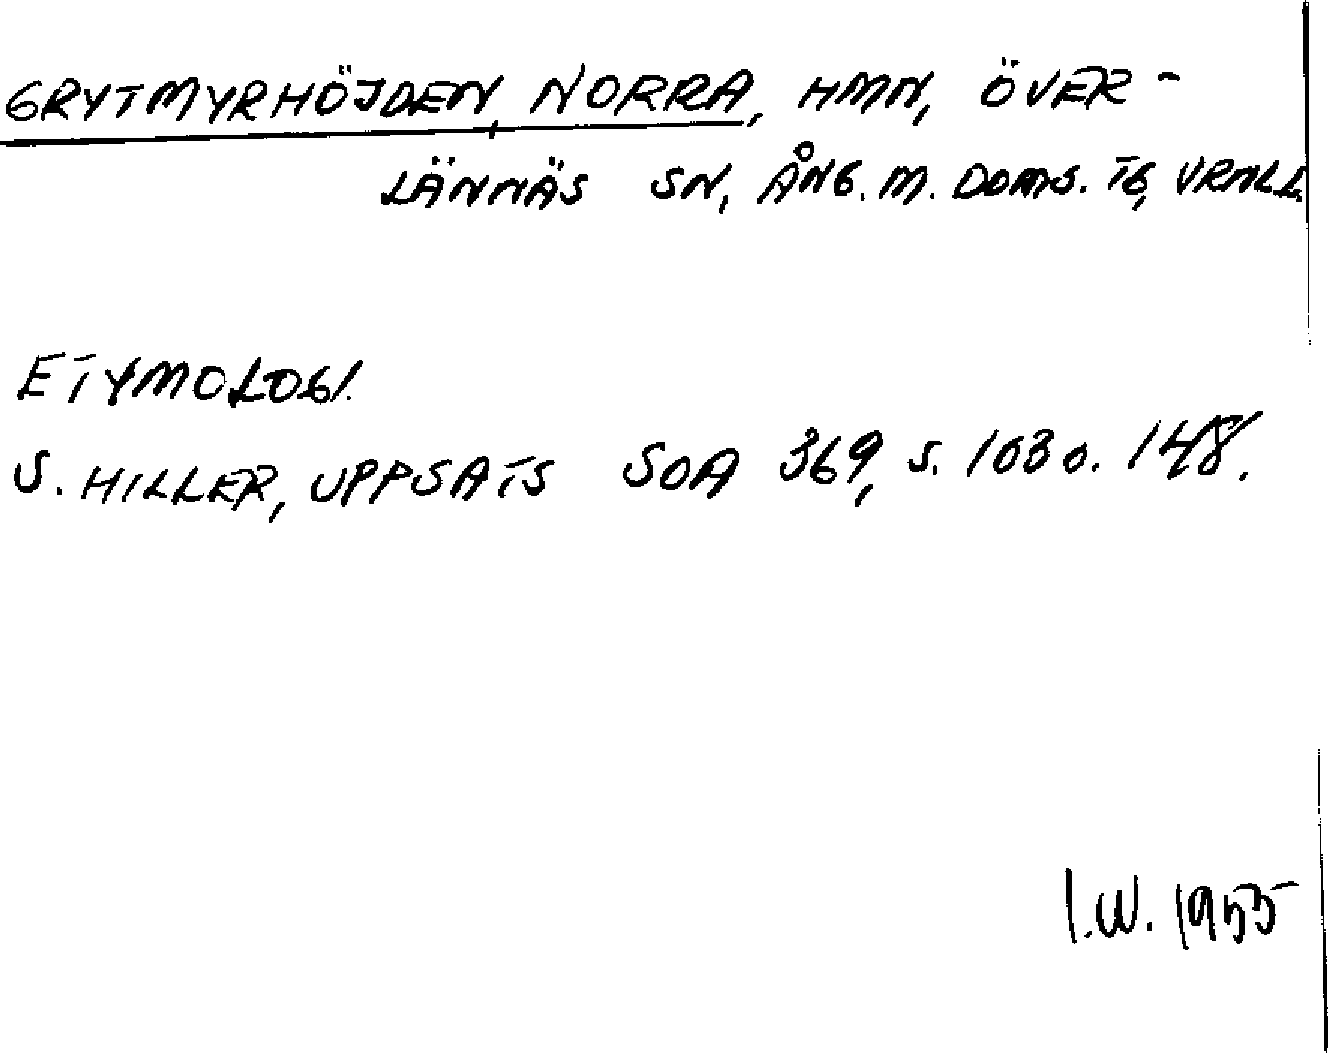 GRYTMYRHÖJDEN, NORRA, HMN, ÖVER-
LÄNNÄS SN, ÅNG. M. DOMS. TG, VRNLL.
ETYMOLOGI.
S. HILLER, UPPSATS SOA 369, S. 103 O. 148.
I.W. 1955